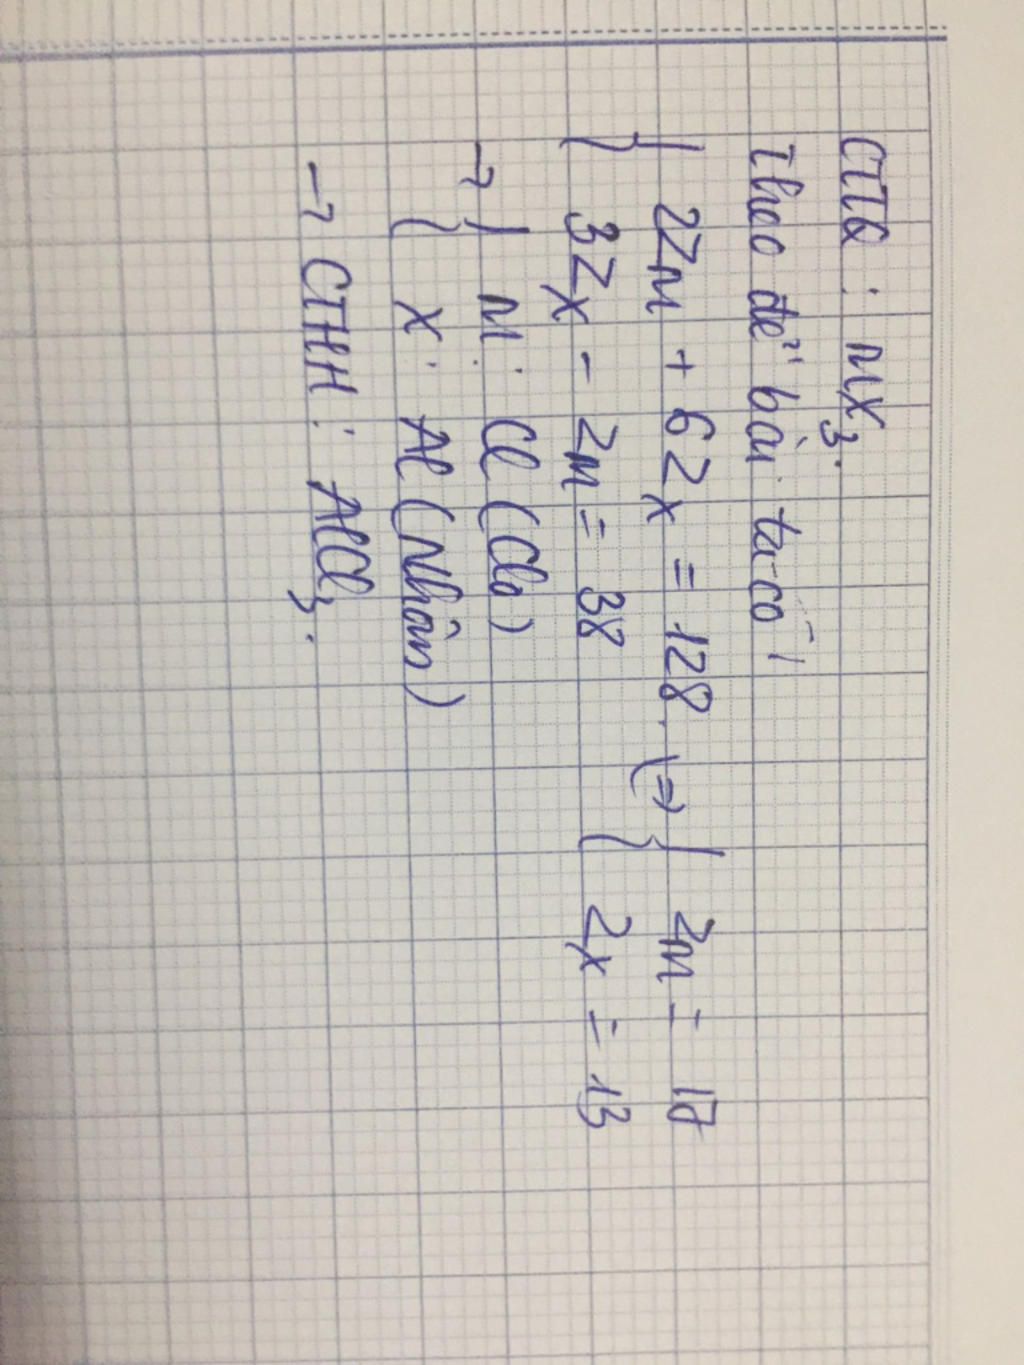 CTTQ : MX3.
Theo đề bài ta có
{ 2ZM + 6ZX = 128. (=> { ZM = 17
{ 3ZX - ZM = 38 { ZX = 13
→ { M : Cl (Clo)
{ X : Al (Nhôm)
→ CTHH : AlCl3.